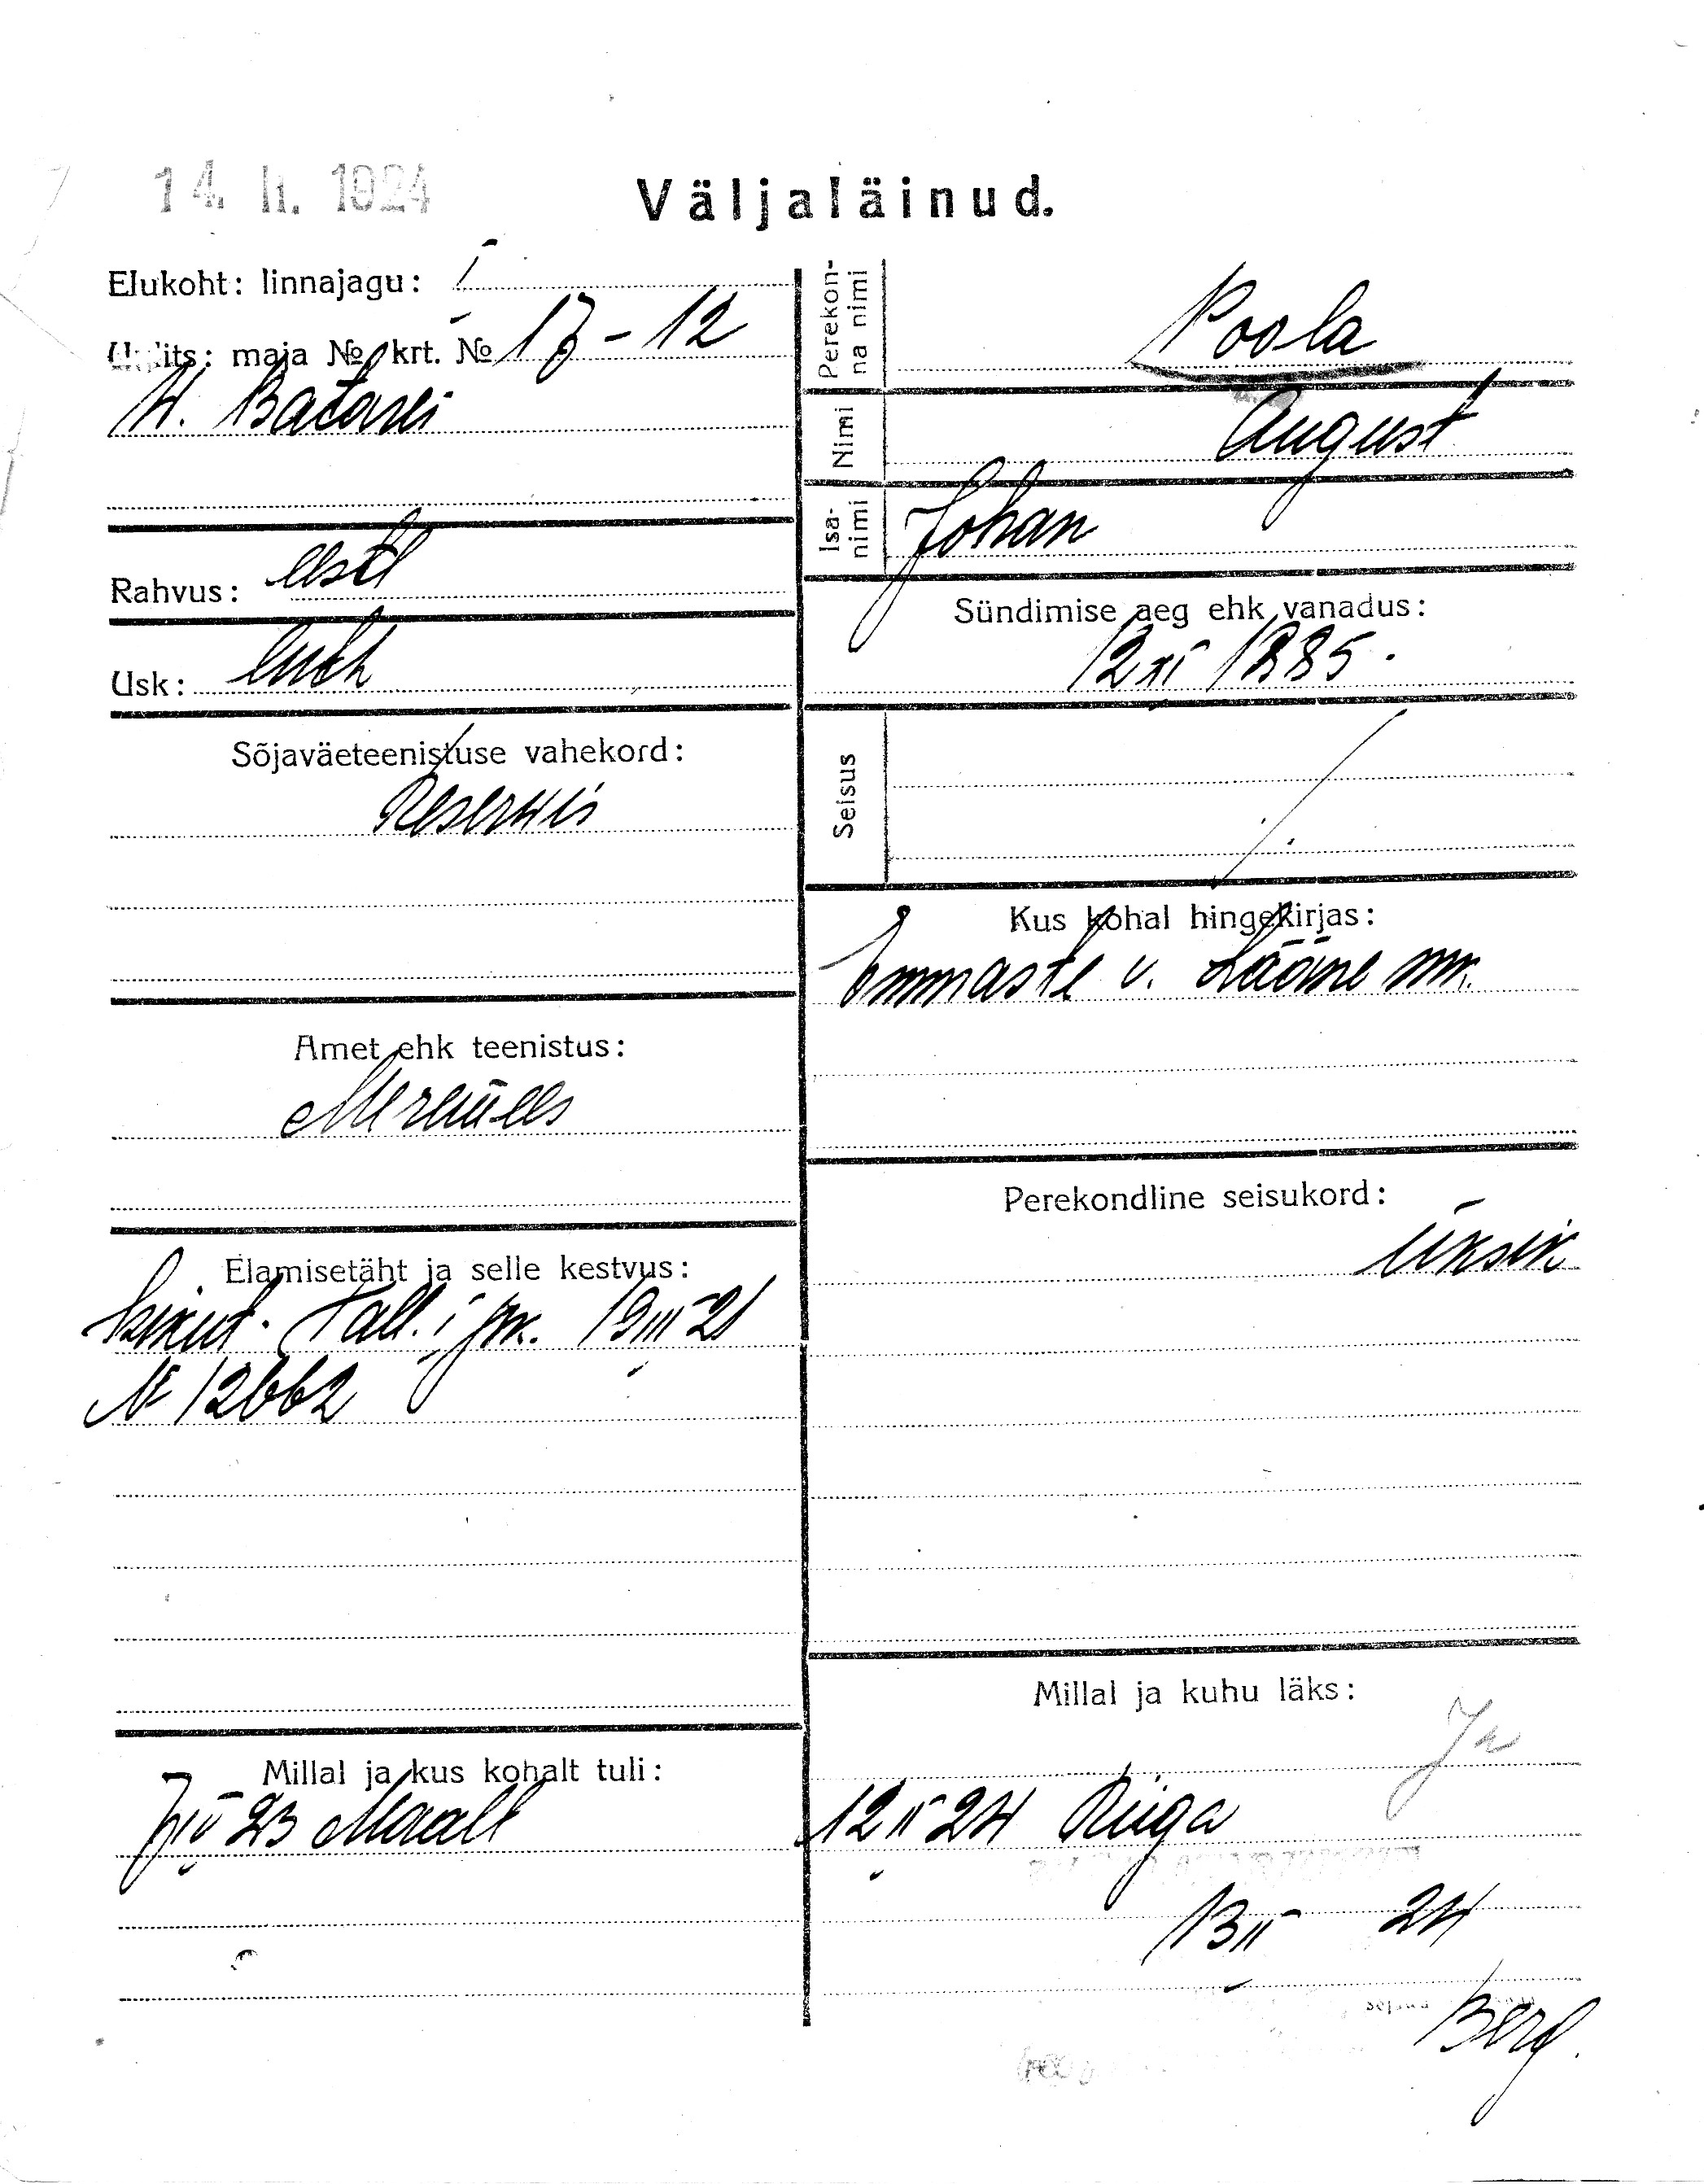 14. II. 1924
Väljaläinud.
Elukoht: linnajagu: I
Uulits: maja № krt. № 17 - 12
W. Batarei
Rahvus: eestl
Usk: luth
Sõjaväeteenistuse vahekord:
Reserwis
Amet ehk teenistus:
Meremees
Elamisetäht ja selle kestvus:
Isikut. Tall. i jsk. 19 III 21
№ 12662
Millal ja kus kohalt tuli:
7 IV 23 Maalt
Perekonna nimi
Poola
Nimi
August
Isanimi
Johan
Sündimise aeg ehk vanadus:
12 XI 1885.
Seisus
Kus kohal hingekirjas:
Emmaste v. Lääne mk.
Perekondline seisukord:
Üksik
Millal ja kuhu läks:
12 II 24 Riiga
13 II 24
Berg.